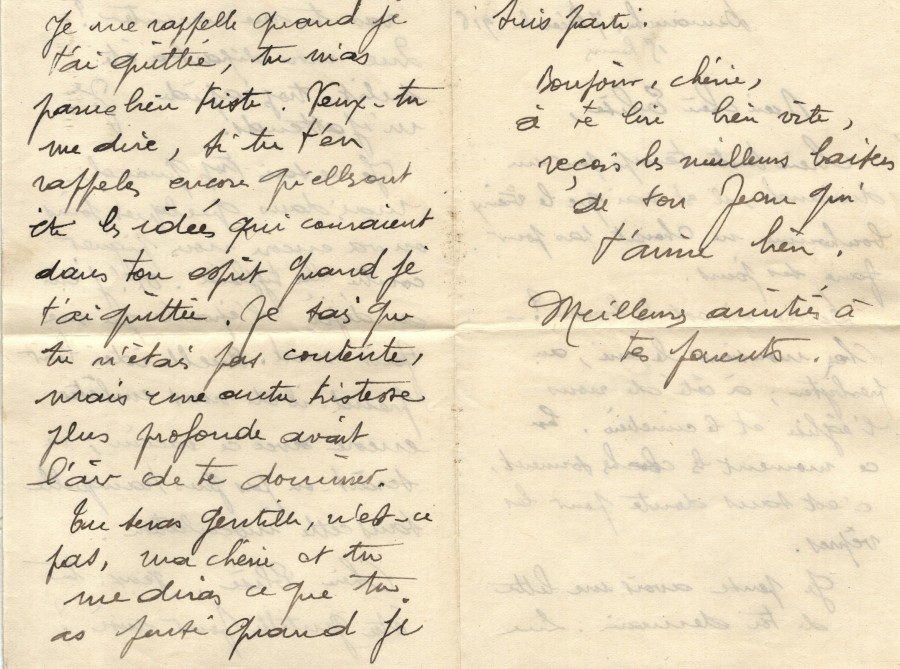 Je me rappelle quand je
t'ai quittée, tu m'as
parue bien triste. Veux-tu
me dire, si tu t'en
rappelles encore qu'elles sont
les idées qui couraient
dans ton esprit quand je
t'ai quittée. Je sais que
tu n'étais pas contente,
mais une autre tristesse
plus profonde avait
l'air de te dominer.
Tu seras gentille, n'est-ce
pas, ma chérie et tu
me diras ce que tu
as pensé quand je
suis parti.
Bonjour, chérie,
à te lire bien vite,
reçois les meilleurs baisers
de ton Jean qui
t'aime bien.
Meilleures amitiés à
tes parents.